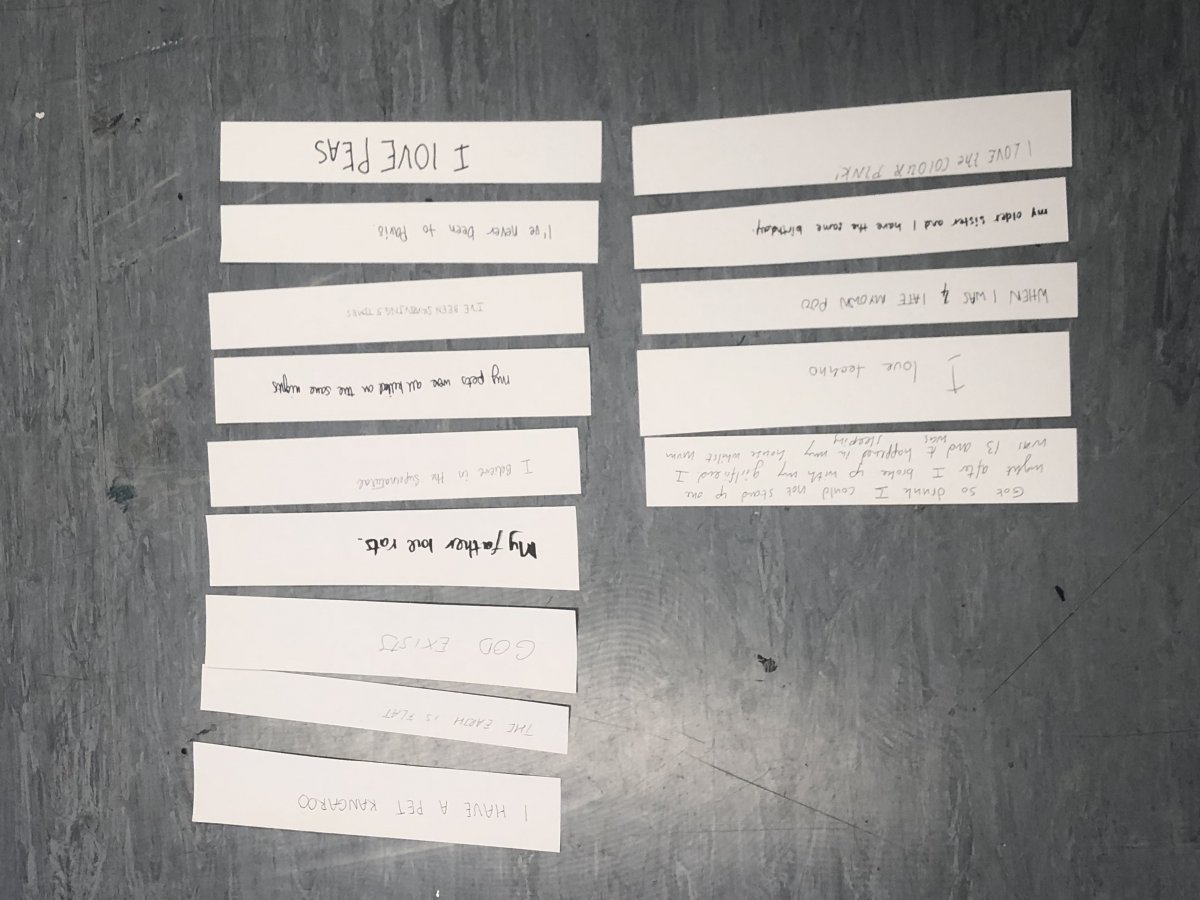 Got so drunk I could not stand up one
night after I broke up with my girlfriend I
was 13 and it happened in my house whilst mum
was sleeping
I love techno
WHEN I WAS 4 I ATE MY OWN POO
my older sister and I have the same birthday.
I LOVE the COLOUR PINK!
I HAVE A PET KANGAROO
THE EARTH IS FLAT
GOD EXISTS
My father love rats.
I Believe in the Supernatural
my pets were all killed on the same nights
I'VE BEEN SKYDIVING 5 TIMES
I've never been to Paris.
I LOVE PEAS